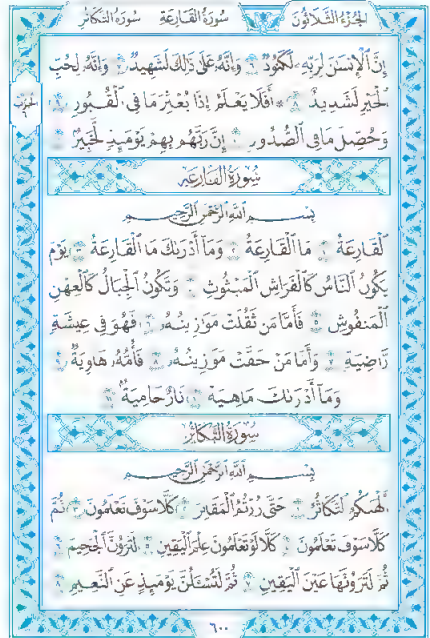 الجزء الثلاثون سورة القارعة سورة التكاثر
إِنَّ ٱلْإِنسَٰنَ لِرَبِّهِۦ لَكَنُودٌ ٦ وَإِنَّهُۥ عَلَىٰ ذَٰلِكَ لَشَهِيدٌ ٧ وَإِنَّهُۥ لِحُبِّ
ٱلْخَيْرِ لَشَدِيدٌ ٨ ۞ أَفَلَا يَعْلَمُ إِذَا بُعْثِرَ مَا فِى ٱلْقُبُورِ ٩
وَحُصِّلَ مَا فِى ٱلصُّدُورِ ١٠ إِنَّ رَبَّهُم بِهِمْ يَوْمَئِذٍ لَّخَبِيرٌۢ ١١
سورة القارعة
بِسْمِ ٱللَّهِ ٱلرَّحْمَٰنِ ٱلرَّحِيمِ
ٱلْقَارِعَةُ ١ مَا ٱلْقَارِعَةُ ٢ وَمَآ أَدْرَىٰكَ مَا ٱلْقَارِعَةُ ٣ يَوْمَ
يَكُونُ ٱلنَّاسُ كَٱلْفَرَاشِ ٱلْمَبْثُوثِ ٤ وَتَكُونُ ٱلْجِبَالُ كَٱلْعِهْنِ
ٱلْمَنفُوشِ ٥ فَأَمَّا مَن ثَقُلَتْ مَوَٰزِينُهُۥ ٦ فَهُوَ فِى عِيشَةٍ
رَّاضِيَةٍ ٧ وَأَمَّا مَنْ خَفَّتْ مَوَٰزِينُهُۥ ٨ فَأُمُّهُۥ هَاوِيَةٌ ٩
وَمَآ أَدْرَىٰكَ مَا هِيَهْ ١٠ نَارٌ حَامِيَةٌۢ ١١
سورة التكاثر
بِسْمِ ٱللَّهِ ٱلرَّحْمَٰنِ ٱلرَّحِيمِ
أَلْهَىٰكُمُ ٱلتَّكَاثُرُ ١ حَتَّىٰ زُرْتُمُ ٱلْمَقَابِرَ ٢ كَلَّا سَوْفَ تَعْلَمُونَ ٣ ثُمَّ
كَلَّا سَوْفَ تَعْلَمُونَ ٤ كَلَّا لَوْ تَعْلَمُونَ عِلْمَ ٱلْيَقِينِ ٥ لَتَرَوُنَّ ٱلْجَحِيمَ ٦
ثُمَّ لَتَرَوُنَّهَا عَيْنَ ٱلْيَقِينِ ٧ ثُمَّ لَتُسْـَٔلُنَّ يَوْمَئِذٍ عَنِ ٱلنَّعِيمِ ٨
٦٠٠